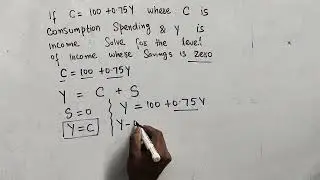 If C = 100 + 0.75Y where C is
Consumption Spending & Y is
Income Solve for the level
of Income where Savings is zero
C = 100 + 0.75Y
Y = C + S
S = 0
Y = 100 + 0.75Y
Y = C
Y -